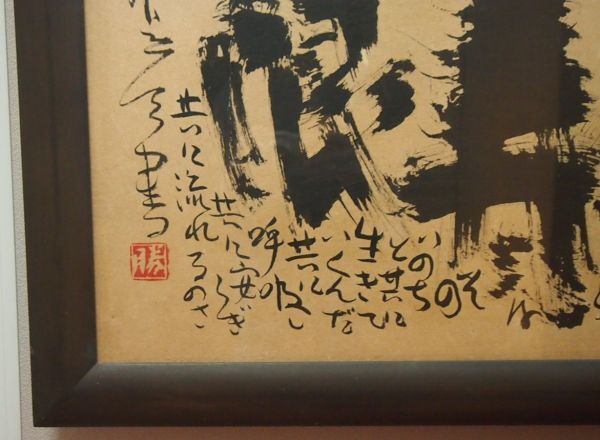 その
いのち
と共に
生きて
いくんだ
共に
呼吸し
共に安らぎ
共に流れるのさ
書
勝